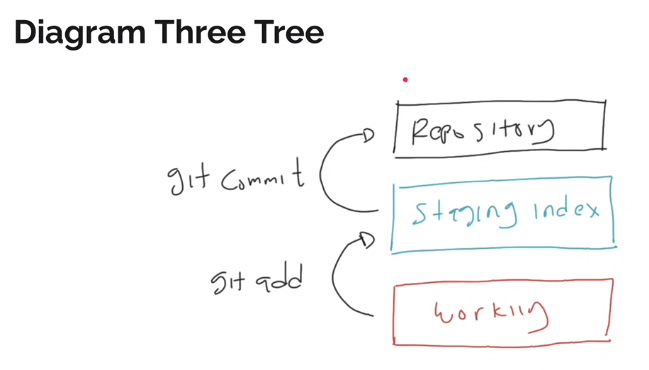 Diagram Three Tree
Repository
git commit
Staging index
git add
Working